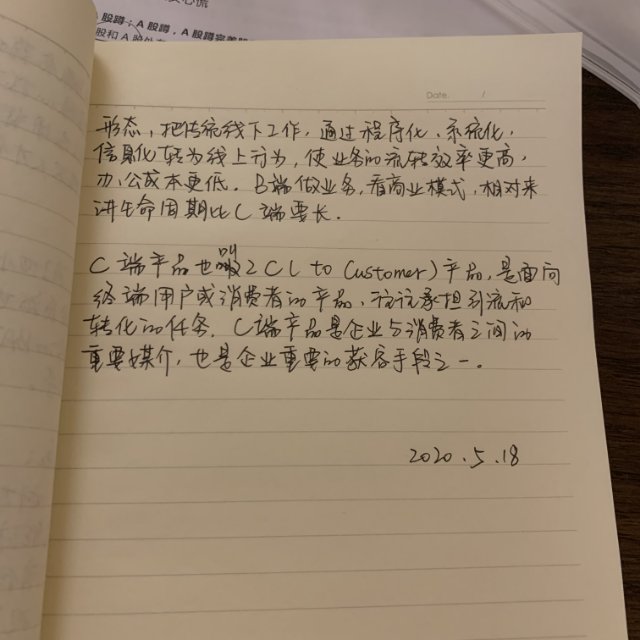 股蹲，A股蹲，A股蹲完美
股和A股处在
Date. /
形态，把传统线下工作，通过程序化、系统化，
信息化转为线上行为，使业务的流转效率更高，
办公成本更低。B端做业务，看商业模式，相对来
讲生命周期比C端要长。
C端产品也叫2C(to Customer)产品，是面向
终端用户或消费者的产品，往往承担引流和
转化的任务。C端产品是企业与消费者之间的
重要媒介，也是企业重要的获客手段之一。
2020.5.18